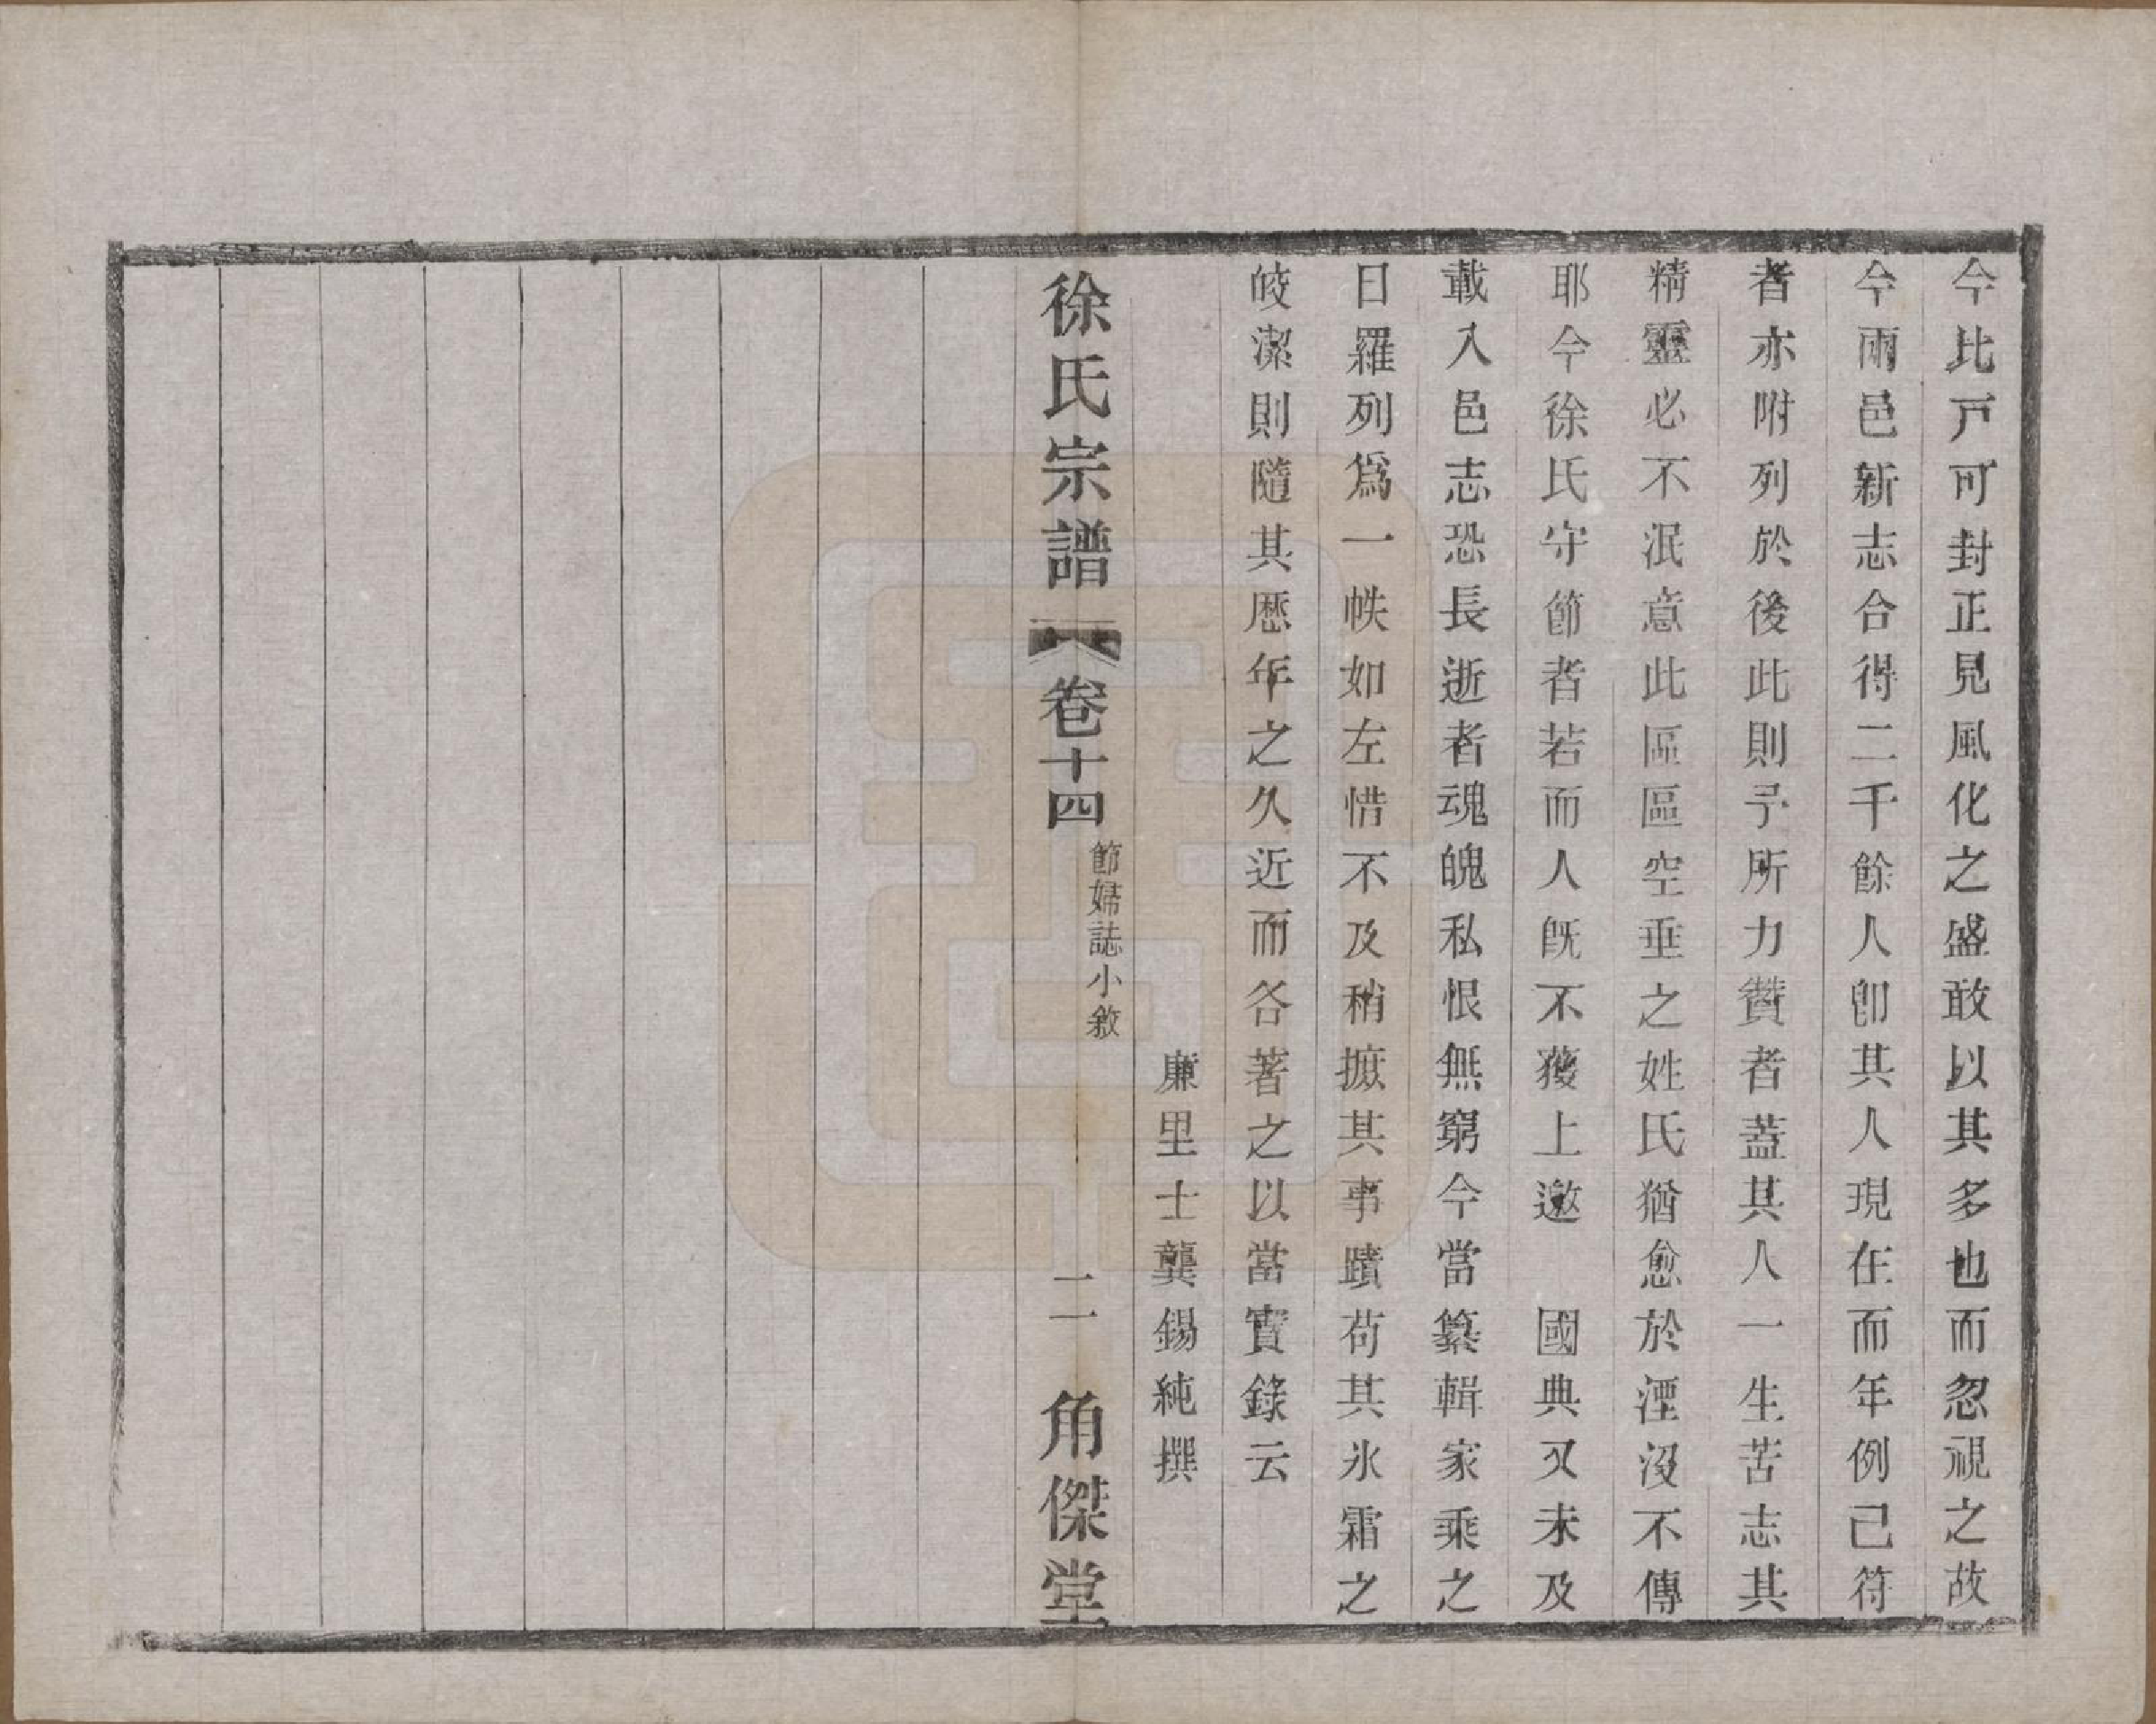 今比戸可封正見風化之盛敢以其多也而忽視之故
今兩邑新志合得二千餘人卽其人現在而年例己符
者亦附列於後此則予所力贊者蓋其人一生苦志其
精靈必不泯意此區區空垂之姓氏猶愈於湮沒不傳
耶今徐氏守節者若而人既不獲上邀　國典又未及
載入邑志恐長逝者魂魄私恨無窮今當纂輯家乘之
日羅列爲一帙如左惜不及稍摭其事蹟苟其氷霜之
皎潔則隨其歷年之久近而各著之以當實錄云
廉里士龔錫純撰
徐氏宗譜
卷十四
節婦誌小敘
二
角傑堂